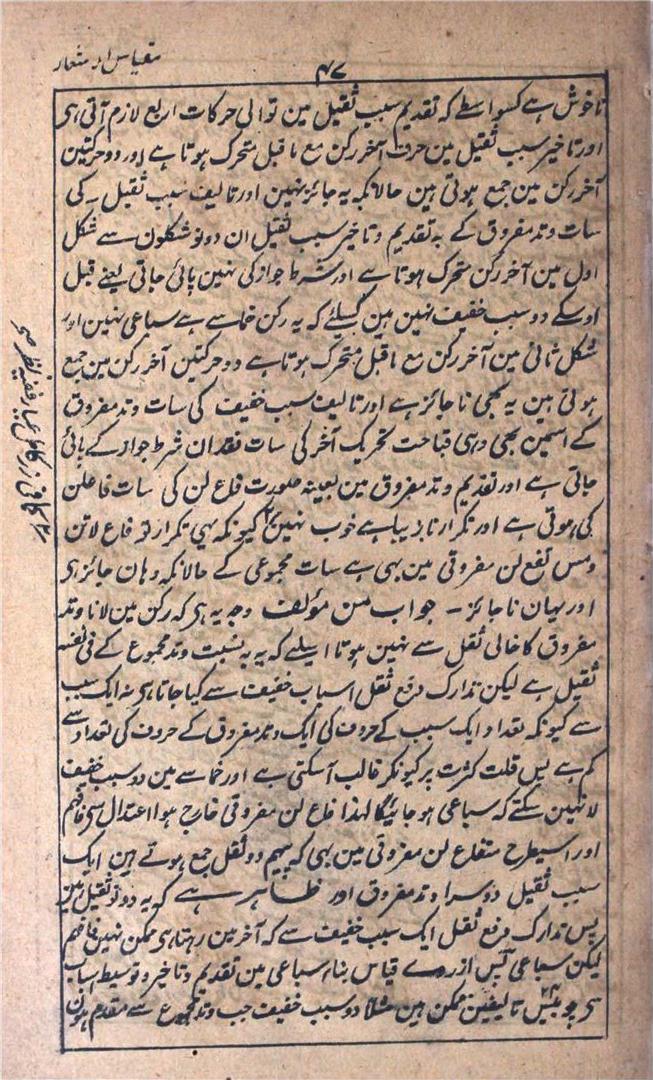 مقیاس الاشعار
۴۷
ناخوش ہے کسواسطے کہ تقدیم سبب ثقیل مین توالی حرکات اربع لازم آتی ہی
اور تاخیر سبب ثقیل مین حرف آخر رکن مع ماقبل متحرک ہوتا ہے اور دو حرکتین
آخر رکن مین جمع ہوتی ہین حالانکہ یہ جائز نہین اور تالیف سبب ثقیل کی
سات وتد مفروق کے بہ تقدیم و تاخیر سبب ثقیل ان دونو شکلون سے شکل
اول مین آخر رکن متحرک ہوتا ہے اور شرط جواز کی نہین پائی جاتی یعنے قبل
اوسکے دو سبب خفیف نہین ہین کسلئے کہ یہ رکن خماسے ہے سباعی نہین اور
شکل ثانی مین آخر رکن مع ماقبل متحرک ہوتا ہے دو حرکتین آخر رکن مین جمع
ہوتی ہین یہ بھی ناجائز ہے اور تالیف سبب خفیف کی سات وتد مفروق
کے اسمین بھی وہی قباحت تحریک آخر کی سات فقدان شرط جواز کے پائی
جاتی ہے اور تقدیم وتد مفروق مین بعینہ صورت فاع لن کی سات فاعلن
کی ہوتی ہے اور تکرار نازیبا ہے خوب نہین کیونکہ یہی تکرار تو فاع لاتن
ومس تفع لن مفروقی مین بہی ہے سات مجموعی کے حالانکہ وہان جائز ہی
اور یہان ناجائز ۔ جواب من مؤلف وجہ یہ ہی کہ رکن مین لانا وتد
مفروق کا خالی ثقل سے نہین ہوتا اسلیے کہ یہ بہ نسبت وتد مجموع کے فی نفسہ
ثقیل ہے لیکن تدارک رفع ثقل اسباب خفیف سے کیا جاتا ہی نہ ایک سبب
سے کیونکہ تعداد ایک سبب کے حروف کی ایک وتد مفروق کے حروف کی تعداد سے
کم ہے پس قلت کثرت پر کیونکر غالب آسکتی ہے اور خماسے مین دو سبب خفیف
لا نہین سکتے کہ سباعی ہو جائیگا لہذا فاع لن مفروقی خارج ہوا اعتدال سی فافہم
اور اسیطرح متفاع لن مفروقی مین بہی کہ پیہم دو ثقل جمع ہوتے ہین ایک
سبب ثقیل دوسرا وتد مفروق اور ظاہر ہے کہ یہ دونو ثقیل ہین
پس تدارک رفع ثقل ایک سبب خفیف سے کہ آخر مین رہتا ہی ممکن نہین فافہم
لیکن سباعی پس ازروے قیاس بناء سباعی مین تقدیم و تاخیر و توسیط اسباب
سی چوبیس تالیفین ممکن ہین مثلاً دو سبب خفیف جب وتد مجموع سے مقدم ہون